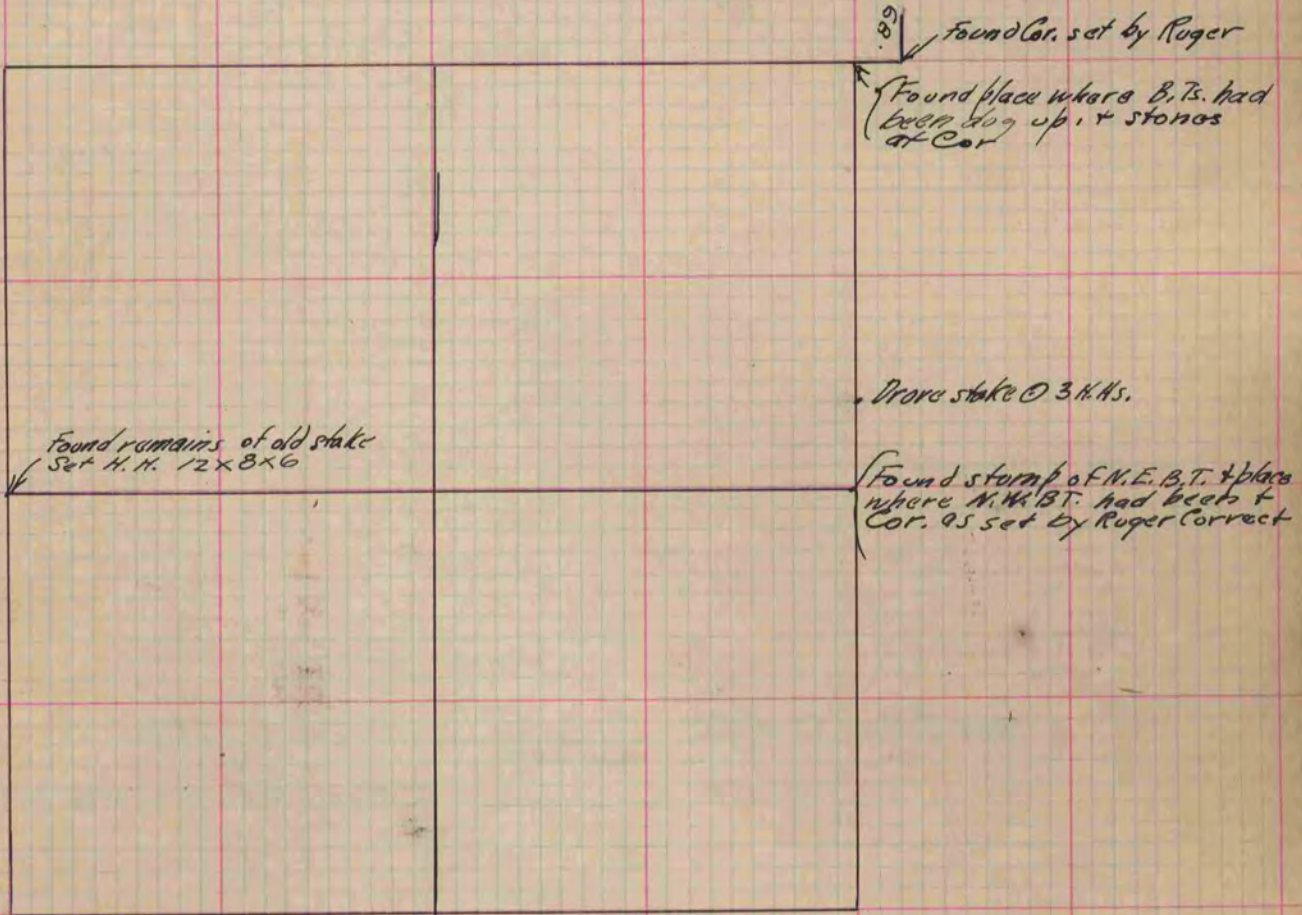 .89
Found Cor. set by Ruger
Found place where B.Ts. had
been dog up, + stones
at Cor
Drove stake @ 3 H.Hs.
Found remains of old stake
Set H.H. 12x8x6
Found stump of N.E. B.T. + place
where N.W. B.T. had been +
Cor. as set by Ruger Correct